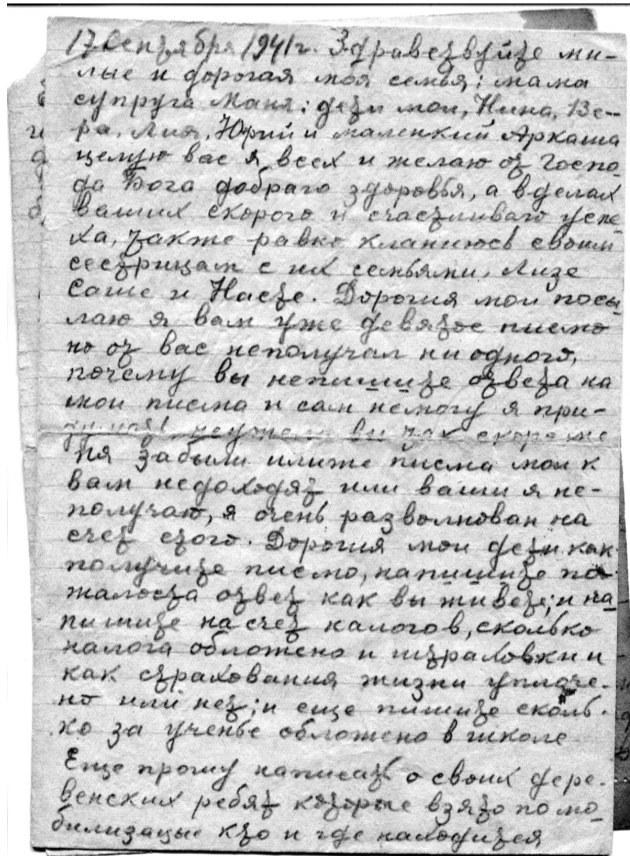 17 Сентября 1941 г. Здравствуйте ми-
лые и дорогая моя семья: мама
супруга Маня: дети мои, Нина, Ве-
ра, Лия, Юрий и маленкий Аркаша
целую вас я всех и желаю от Госпо-
да Бога добраго здоровья, а в делах
ваших скорого и счастливаго успе-
ха, также равно кланиюсь своим
сестрицам с их семьями, Лизе
Саше и Насте. Дорогия мои посы-
лаю я вам уже девятое писмо
но от вас неполучал ни одного,
почему вы непишите ответа на
мои писма и сам немогу я при-
думать, неужели вы так скоро ме
ня забыли илиже писма мои к
вам недоходят или ваши я не-
получаю, я очень разволнован на
счет етого. Дорогия мои дети как
получите писмо, напишите по-
жалоста ответ как вы живете; и на
пишите насчет налогов, сколько
налога обложено и штраховки и
как страхования жизни уплаче-
но или нет; и еще пишите сколь-
ко за ученье обложено в школе
Еще прошу написать о своих дере-
венских ребят которые взято по мо-
билизацые кто и где находится